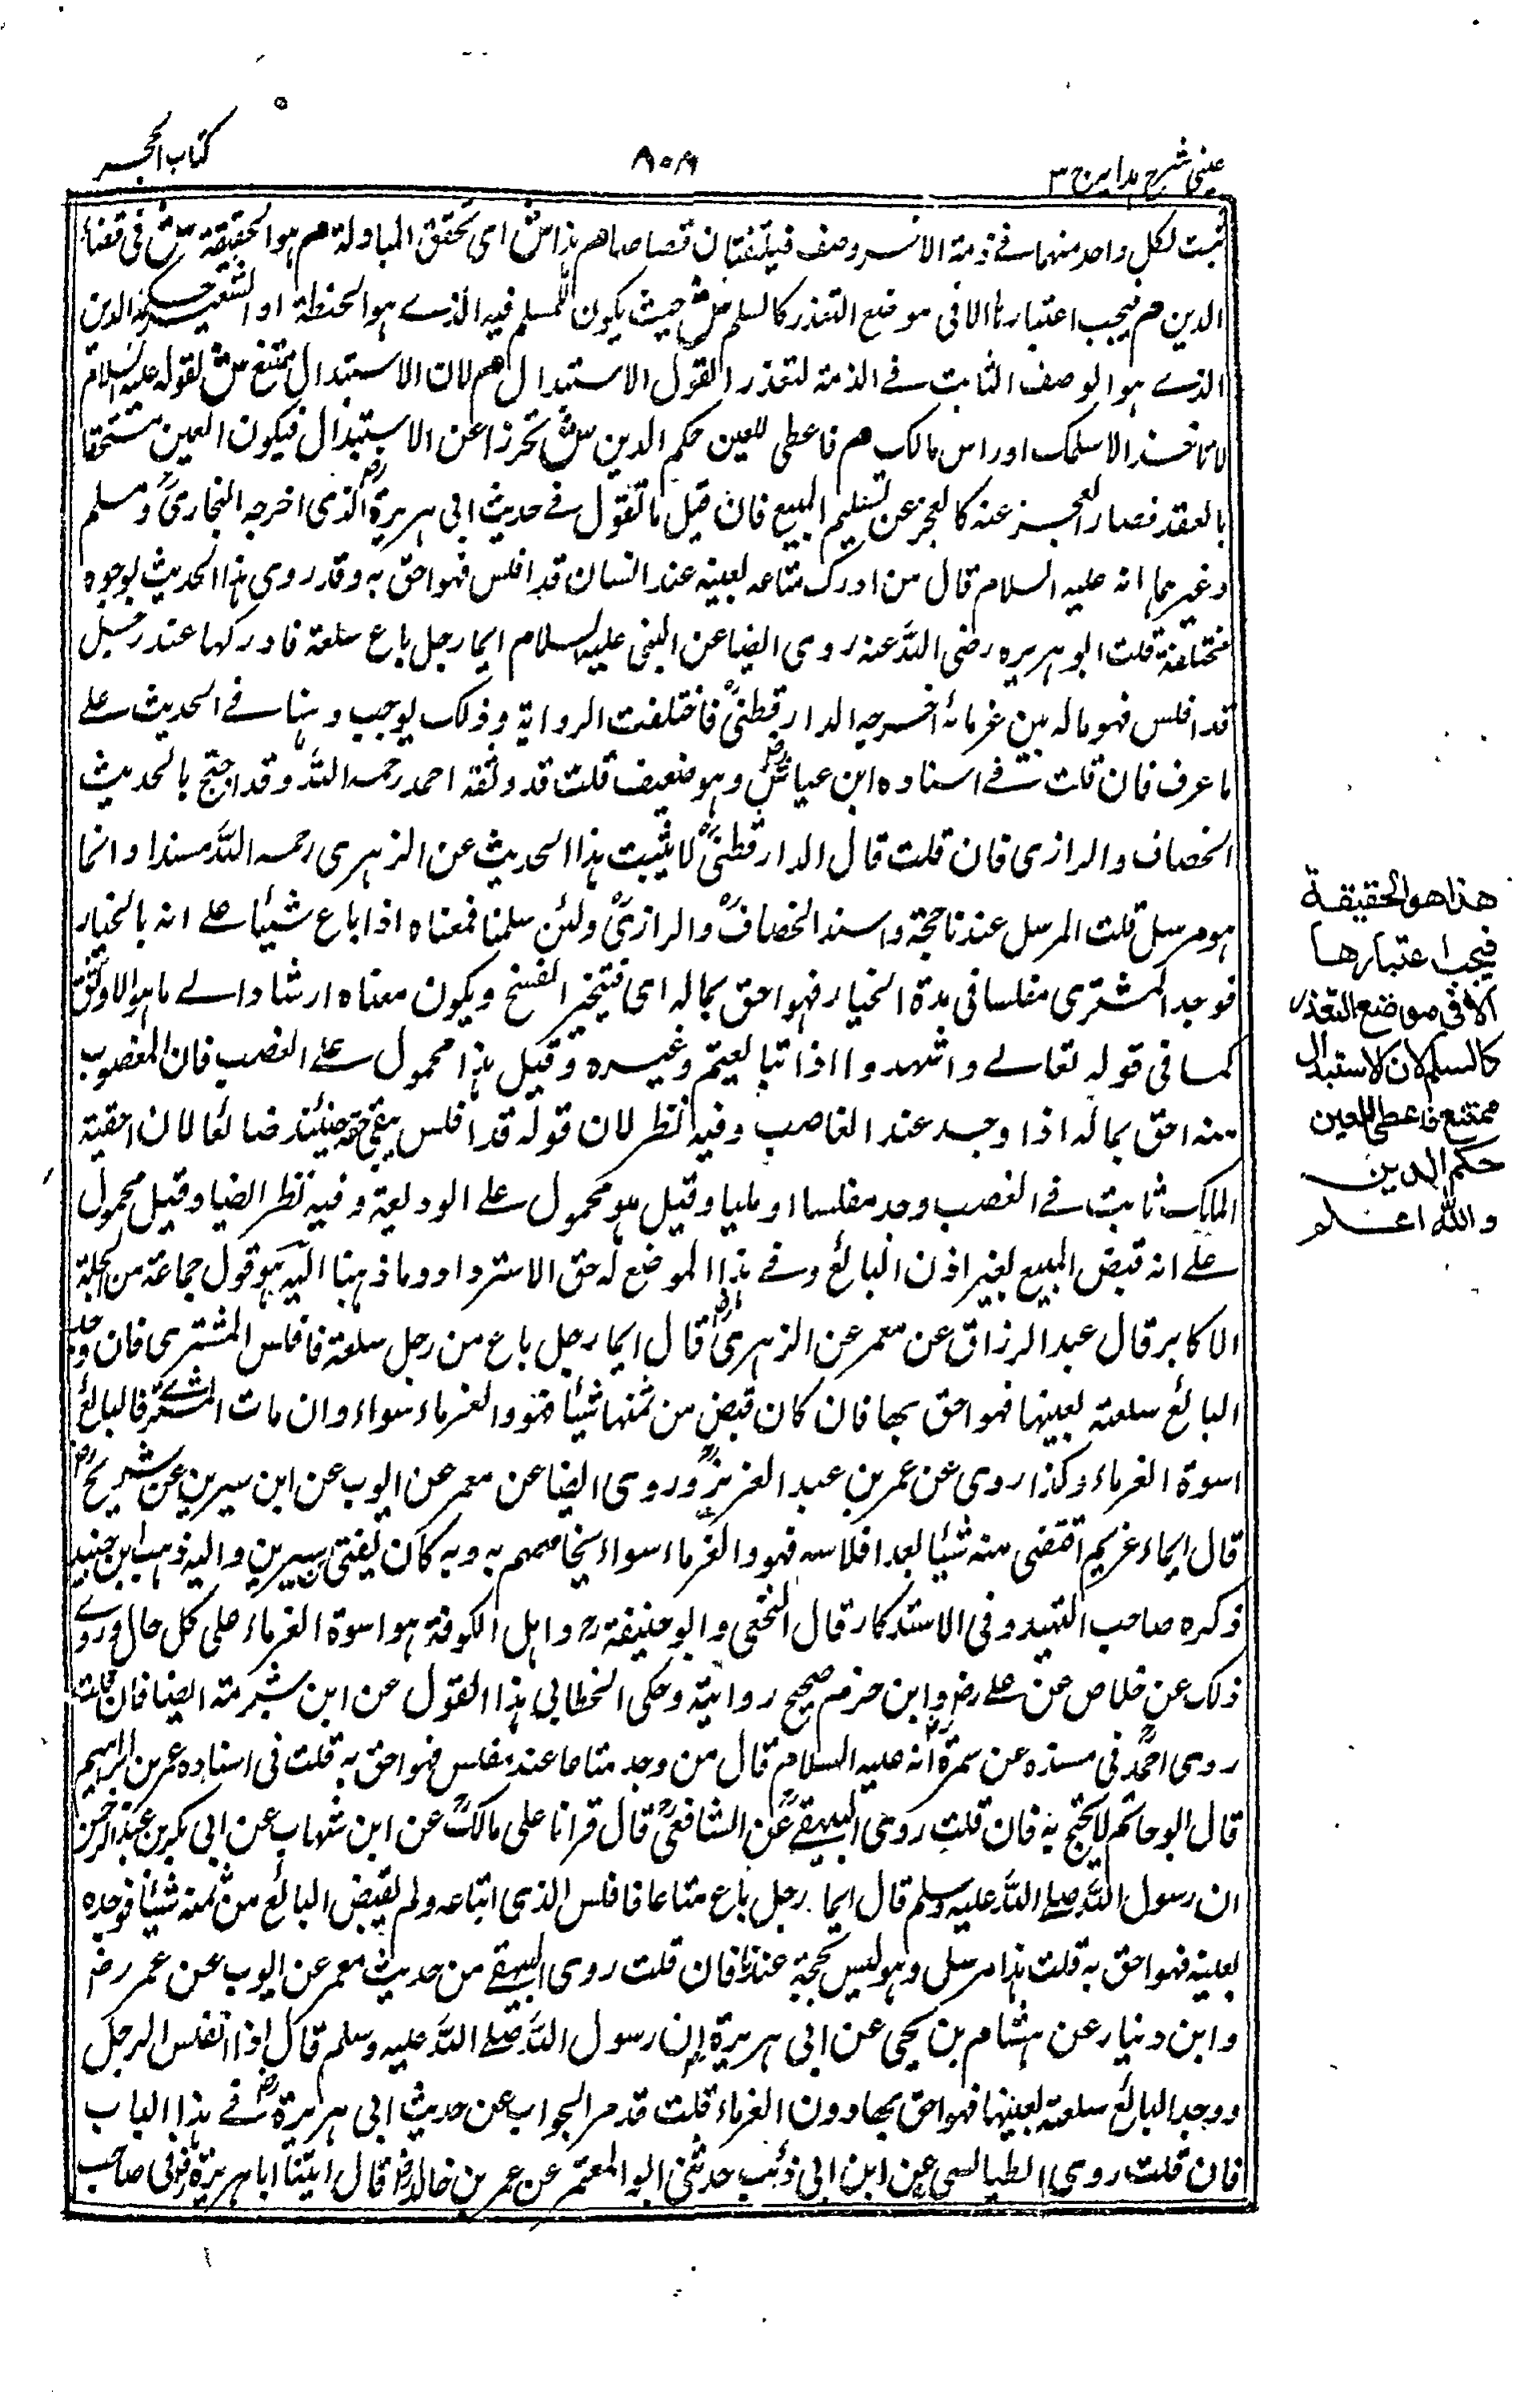 عینی شرح ہدایہ ج ۳
۸۰۸
کتاب الحجر
ثبت لکل واحد منهما فی ذمة الآخر وصف فیلتقیان قصاصا هم هذا ش ای تحقق المبادلة هم هو الحقیقة ش فی قضاء
الدین هم فیجب اعتبارها الا فی موضع التعذر کالسلم ش حیث یکون للمسلم فیه الذی هو الحنطة او الشعیر حکم الدین
الذی هو الوصف الثابت فی الذمة لتعذر القول الاستبدال هم لان الاستبدال ممتنع ش لقوله علیه السلام
لا تاخذ الا سلمک او راس مالک هم فاعطی للعین حکم الدین ش تحرزا عن الاستبدال فیکون العین مستحقا
بالعقد فصار العجز عنه کالعجز عن تسلیم المبیع فان قیل ما تقول فی حدیث ابی هریرة رض الذی اخرجه البخاری ومسلم
وغیرهما انه علیه السلام قال من ادرک متاعه بعینه عند انسان قد افلس فهو احق به وقد روی هذا الحدیث بوجوه
مختلفة قلت ابو هریرة رضی الله عنه روی ایضا عن النبی علیه السلام ایما رجل باع سلعة فادرکها عند رجل
قد افلس فهو ماله بین غرمائه اخرجه الدارقطنی فاختلفت الروایة وذلک یوجب وهنا فی الحدیث علی
ما عرف فان قلت فی اسناده ابن عیاش وهو ضعیف قلت قد وثقه احمد رحمه الله وقد احتج بالحدیث
الخصاف والرازی فان قلت قال الدارقطنی لا یثبت هذا الحدیث عن الزهری رحمه الله مسندا وانما
هو مرسل قلت المرسل عندنا حجة واسند الخصاف والرازی ولئن سلمنا فمعناه اذا باع شیئا علی انه بالخیار
فوجد المشتری مفلسا فی مدة الخیار فهو احق بماله ای فیتخیر الفسخ ویکون معناه ارشادا الی ما هو الاوثق
کما فی قوله تعالی واشهدوا اذا تبایعتم وغیره وقیل هذا محمول علی الغصب فان المغصوب
منه احق بماله اذا وجد عند الغاصب وفیه نظر لان قوله قد افلس یبقی حینئذ ضائعا لان احقیة
المالک ثابت فی الغصب وجد مفلسا او ملیا وقیل هو محمول علی الودیعة وفیه نظر ایضا وقیل محمول
علی انه قبض المبیع بغیر اذن البائع وفی هذا الموضع له حق الاسترداد وما ذهبنا الیه هو قول جماعة من الجلة
الاکابر قال عبد الرزاق عن معمر عن الزهری قال ایما رجل باع من رجل سلعة فافلس المشتری فان وجد
البائع سلعته بعینها فهو احق بها فان کان قبض من ثمنها شیئا فهو والغرماء سواء وان مات المشتری فالبائع
اسوة الغرماء وکذا روی عن عمر بن عبد العزیز وروی ایضا عن معمر عن ایوب عن ابن سیرین عن شریح
قال ایما غریم اقتضی منه شیئا بعد افلاسه فهو والغرماء سواء یخاصمهم به وبه کان یفتی ابن سیرین والیه ذهب ابن جنید
ذکره صاحب التمهید وفی الاستذکار قال النخعی وابو حنیفة رح واهل الکوفة هو اسوة الغرماء علی کل حال وروی
ذلک عن خلاص عن علی رض وابن حزم صحیح روایته وحکی الخطابی هذا القول عن ابن شبرمة ایضا فان قلت
روی احمد فی مسنده عن سمرة انه علیه السلام قال من وجد متاعا عند مفلس فهو احق به قلت فی اسناده عمر بن ابراهیم
قال ابو حاتم لا یحتج به فان قلت روی البیهقی عن الشافعی قال قرانا علی مالک عن ابن شهاب عن ابی بکر بن عبد الرحمن
ان رسول الله صلی الله علیه وسلم قال ایما رجل باع متاعا فافلس الذی ابتاعه ولم یقبض البائع من ثمنه شیئا فوجده
بعینه فهو احق به قلت هذا مرسل وهو لیس بحجة عندنا فان قلت روی البیهقی من حدیث معمر عن ایوب عن عمر رض
وابن دینار عن هشام بن یحیی عن ابی هریرة ان رسول الله صلی الله علیه وسلم قال اذا افلس الرجل
ووجد البائع سلعته بعینها فهو احق بها دون الغرماء قلت قد مر الجواب عن حدیث ابی هریرة رض فی هذا الباب
فان قلت روی الطیالسی عن ابن ابی ذئب حدثنی ابو المعتمر عن عمر بن خالد قال اتینا ابا هریرة رض فی صاحب
هذا هو الحقیقة
فیجب اعتبارها
الا فی موضع التعذر
کالسلم لان الاستبدال
ممتنع فاعطی للعین
حکم الدین
والله اعلم